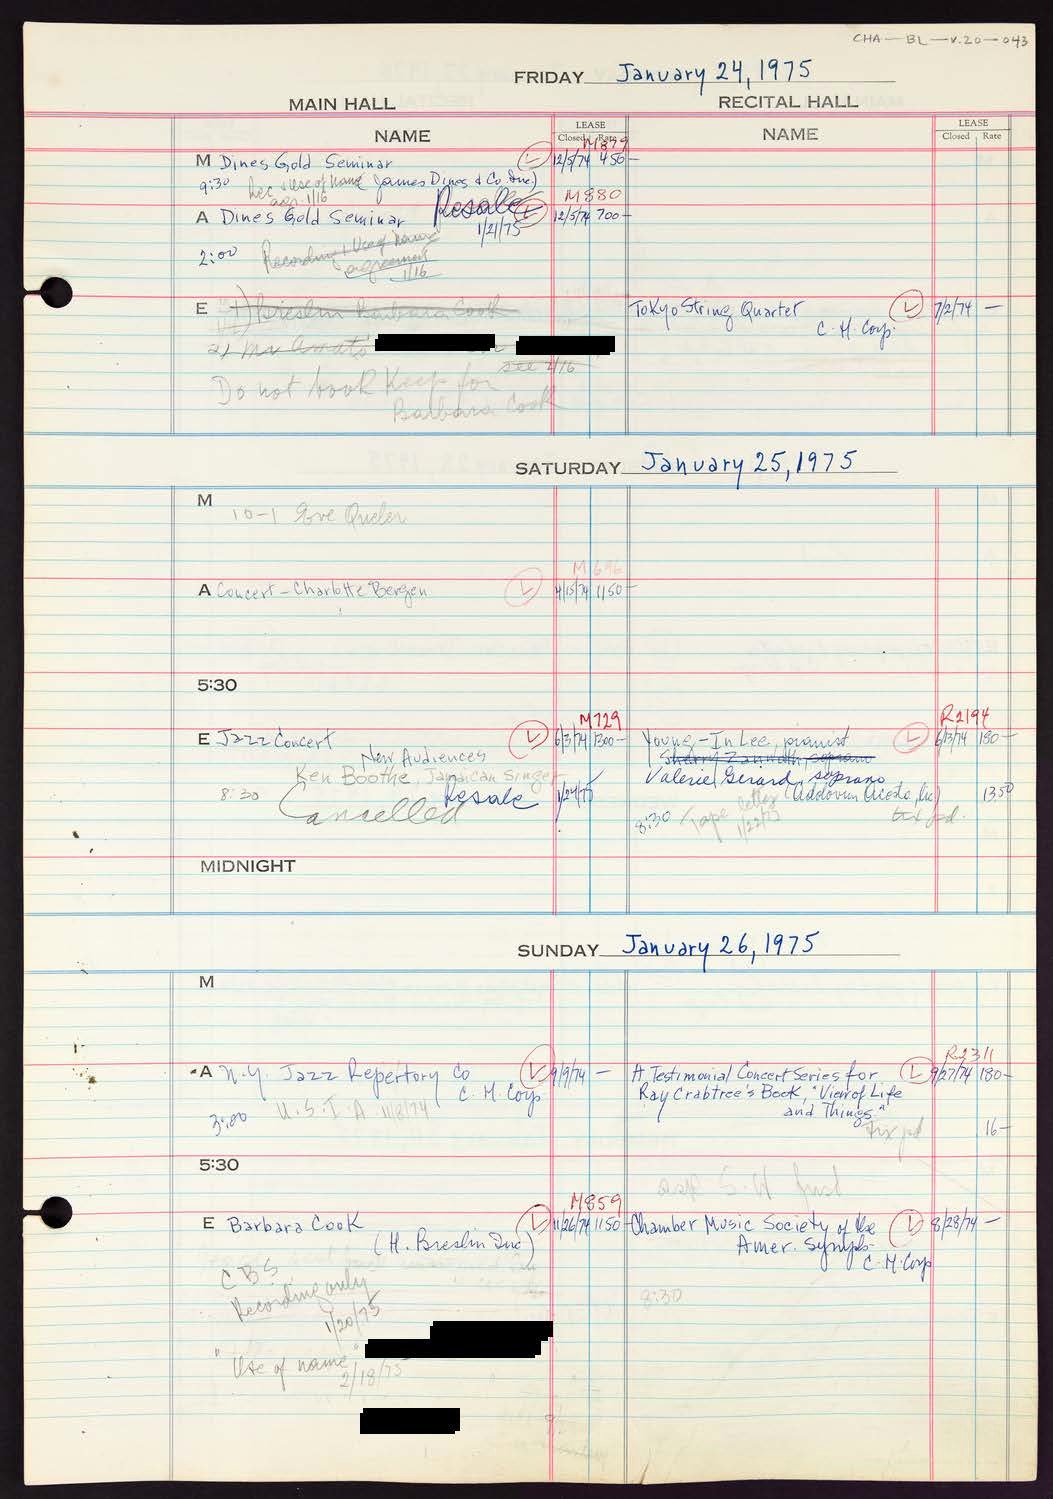 CHA-BL-V.20-043
FRIDAY January 24, 1975
MAIN HALL RECITAL HALL
NAME LEASE NAME LEASE
Closed Rate Closed Rate
M879
M Dines Gold Seminar L 12/5/74 450-
9:30 Rec & Use of Name James Dines & Co. Inc)
agr. 1/16
M880
A Dines Gold Seminar Resale L 12/5/74 700-
1/21/75
2:00 Recording & Use of Name
agreement
1/16
E 1) Breslin Barbara Cook Tokyo String Quartet L 7/2/74 -
C. H. Corp.
2) Mr Amato
see 2/16
Do not book Keep for
Barbara Cook
SATURDAY January 25, 1975
M
10-1 Eve Queler
M696
A Concert - Charlotte Bergen L 4/15/74 1150-
5:30
M729 R2194
E Jazz Concert L 6/3/74 1300- Young-In Lee, pianist L 6/13/74 180-
New Audiences soprano
Ken Boothe, Jamaican Singer Valerie Gerard, soprano
8:30 Resale 1/24/75 13.50
Cancelled 8:30 Tape letter
1/22/75
MIDNIGHT
SUNDAY January 26, 1975
M
R2311
A N.Y. Jazz Repertory Co L 9/9/74 - A Testimonial Concert Series for L 9/27/74 180-
C. H. Corp Ray Crabtree's Book, "View of Life
3:00 U.S.I.A. 11/8/74 and Things."
tix pd 16-
5:30
M859
E Barbara Cook L 11/26/74 1150- Chamber Music Society of the L 8/28/74 -
(H. Breslin Inc) Amer. Symph-
C. H. Corp
CBS
Recording only 8:30
1/20/75
"Use of name"
2/18/75